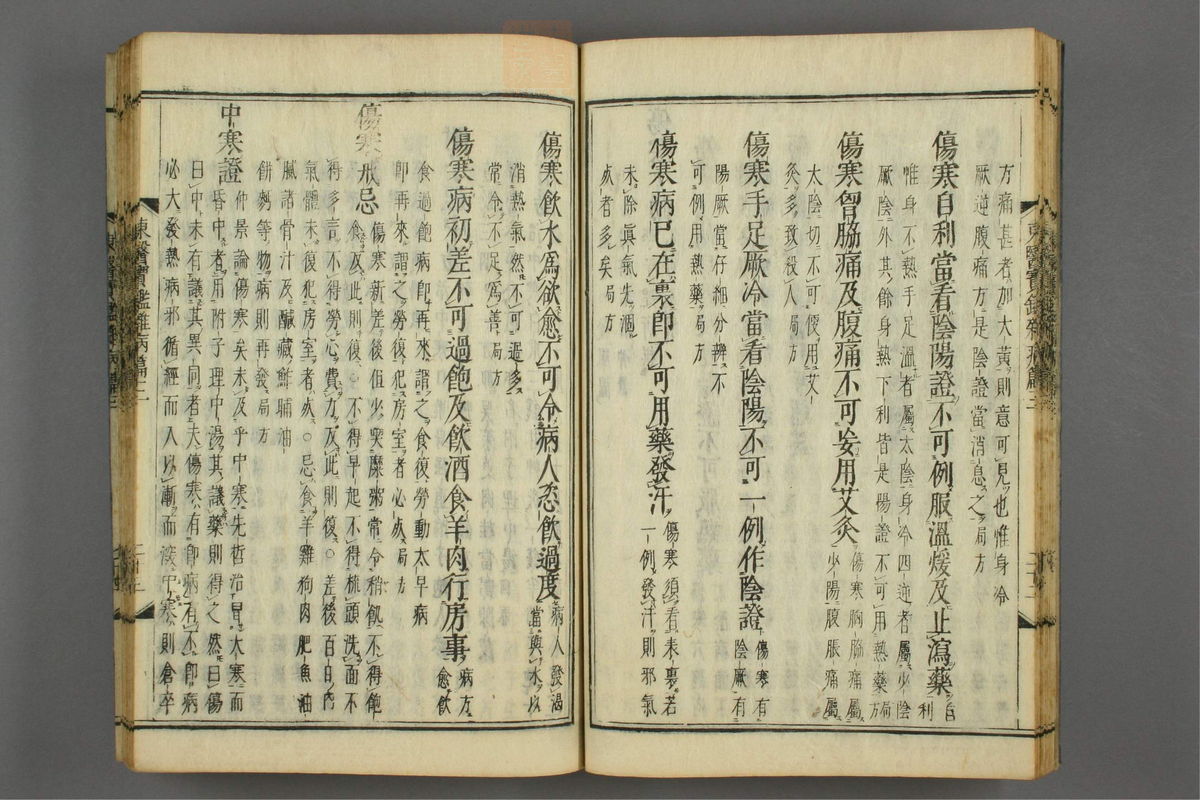 方痛甚者加大黃則意可見也惟身冷
厥逆腹痛方是陰證當消息之局方
傷寒自利當看陰陽證不可例服溫煖及止瀉藥
自利
惟身不熱手足溫者屬太陰身冷四逆者屬少陰
厥陰外其餘身熱下利皆是陽證不可用熱藥局方
傷寒胷脇痛及腹痛不可妄用艾灸
傷寒胸脇痛屬
少陽腹脹痛屬
太陰切不可便用艾
灸多致殺人局方
傷寒手足厥冷當看陰陽不可一例作陰證
傷寒有
陰厥有
陽厥當仔細分辨不
可例用熱藥局方
傷寒病已在裏卽不可用藥發汗
傷寒須看表裏若
一例發汗則邪氣
未除眞氣先涸
死者多矣局方
傷寒飮水爲欲愈不可令病人恣飮過度
病人發渴
當與水以
消熱氣然不可過多
常令不足爲善局方
傷寒病初差不可過飽及飮酒食羊肉行房事
病方
愈飮
食過飽病卽再來謂之食復勞動太早病
卽再來謂之勞復犯房室者必死局方
傷寒戒忌
傷寒新差後但少喫糜粥常令稍飢不得飽
食反此則復○不得早起不得梳頭洗面不
得多言不得勞心費力反此則復○差後百日內
氣體未復犯房室者死○忌食羊雞狗肉肥魚油
膩諸骨汁及鹹藏鮓脯油
餅麪等物病則再發局方
中寒證
仲景論傷寒矣未及乎中寒先哲治冒大寒而
昏中者用附子理中湯其議藥則得之然曰傷
曰中未有議其異同者夫傷寒有卽病有不卽病
必大發熱病邪循經而入以漸而深中寒則倉卒
東醫寶鑑雜病篇二
二十二